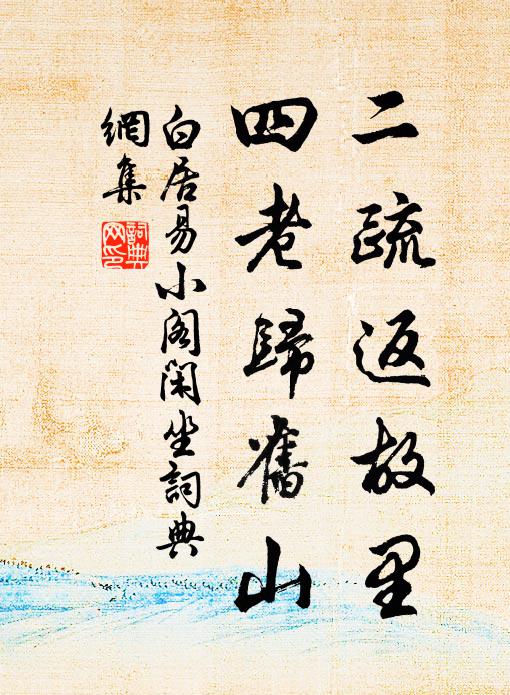 二疏返故里
四老歸舊山
白居易小阁闲坐詞典
網集
詞典
网印